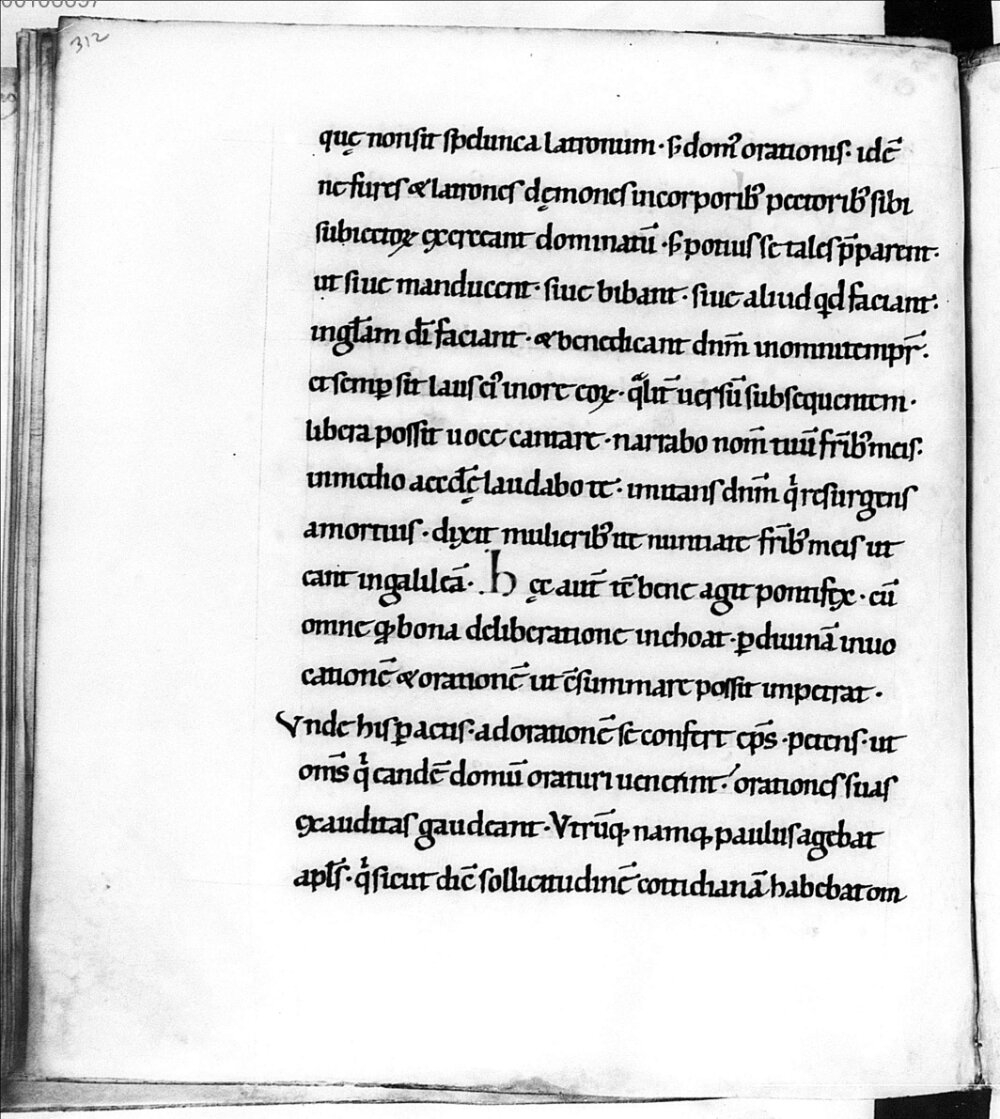 312
quę non sit spelunca latronum · s; domꝰ orationis · id ē
ne fures & latrones dęmones in corporibꝰ pectoribꝰ sibi
subiectoꝝ exerceant dominatū · s; potius se tales p̄parent ·
ut siue manducent · siue bibant · siue aliud qd faciant ·
in gl̄am dī faciant · & benedicant dn̄m in omni tempr̄ ·
et semꝑ sit laus eiꝰ in ore eoꝝ · qᵃlit̄ uersū subsequentem ·
libera possit uoce cantare · narrabo nom̄ tuū fr̄ibꝰ meis ·
in medio aecclę̄ laudabo te · imitans dn̄m qⁱ resurgens
a mortuis · dixit mulieribꝰ ut nuntiate fr̄ibꝰ meis ut
eant in galileā · hęc aut̄ tē bene agit pontifex · cū
omne qꝫ bona deliberatione inchoat · ꝑ diuinā inuo
cationē & orationē ut c̄summare possit impetrat ·
Vnde his ꝑactis · ad orationē se confert ep̄s · petens · ut
om̄s qⁱ eandē domū oraturi uenerint · orationes suas
exauditas gaudeant · Vtrūqꝫ namqꝫ paulus agebat
apl̄s · qⁱ sicut diē sollicitudinē cottidianā habebat om